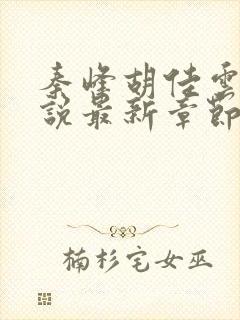 秦峰胡佳雲
說最新章節
楠杉宅女巫